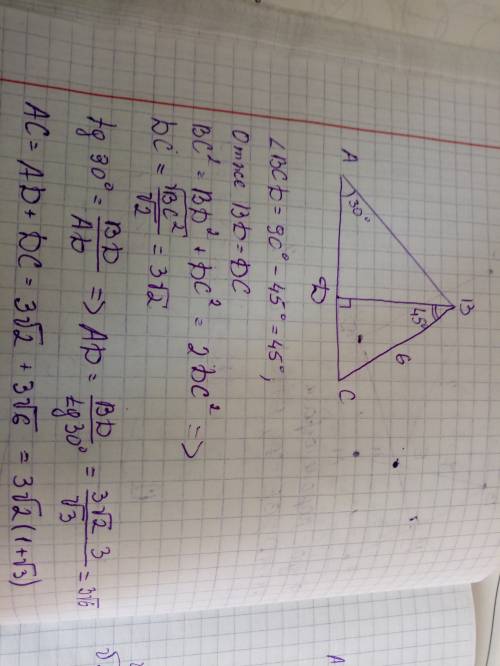 A 30° B 45° 6 D C
∠BCD = 90° - 45° = 45°,
Отже BD = DC
BC² = BD² + DC² = 2DC² =>
DC = √BC² / √2 = 3√2
tg 30° = BD / AD => AD = BD / tg 30° = 3√2 3 / √3 = 3√6
AC = AD + DC = 3√2 + 3√6 = 3√2(1+√3)
A